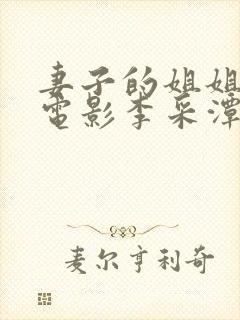 妻子的姐姐
電影李采潭
麦尔亨利奇